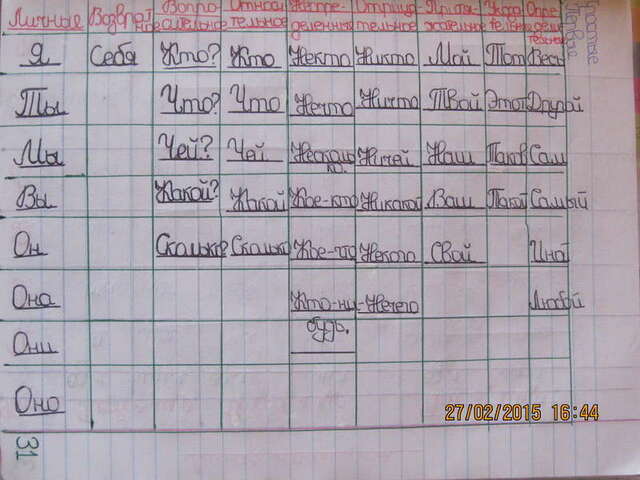 Личные Возврат- ное Вопро- сительные Относи- тельное Неопре- деленные Отрица- тельное Притя- жательное Указа- тельные Опре- дели- тельное
Я Себя Кто? Кто Некто Никто Мой Тот Весь
Ты Что? Что Нечто Ничто Твой Этот Другой
Мы Чей? Чей Несколь- ко. Ничей Наш Таков Сам
Вы Какой? Какой Кое-кто Никакой Ваш Такой Самый
Он Сколько? Сколько Кое-что Некого Свой Иной
Она Кто-ни- будь. Нечего Любой
Они
Оно
27/02/2015 16:44
31